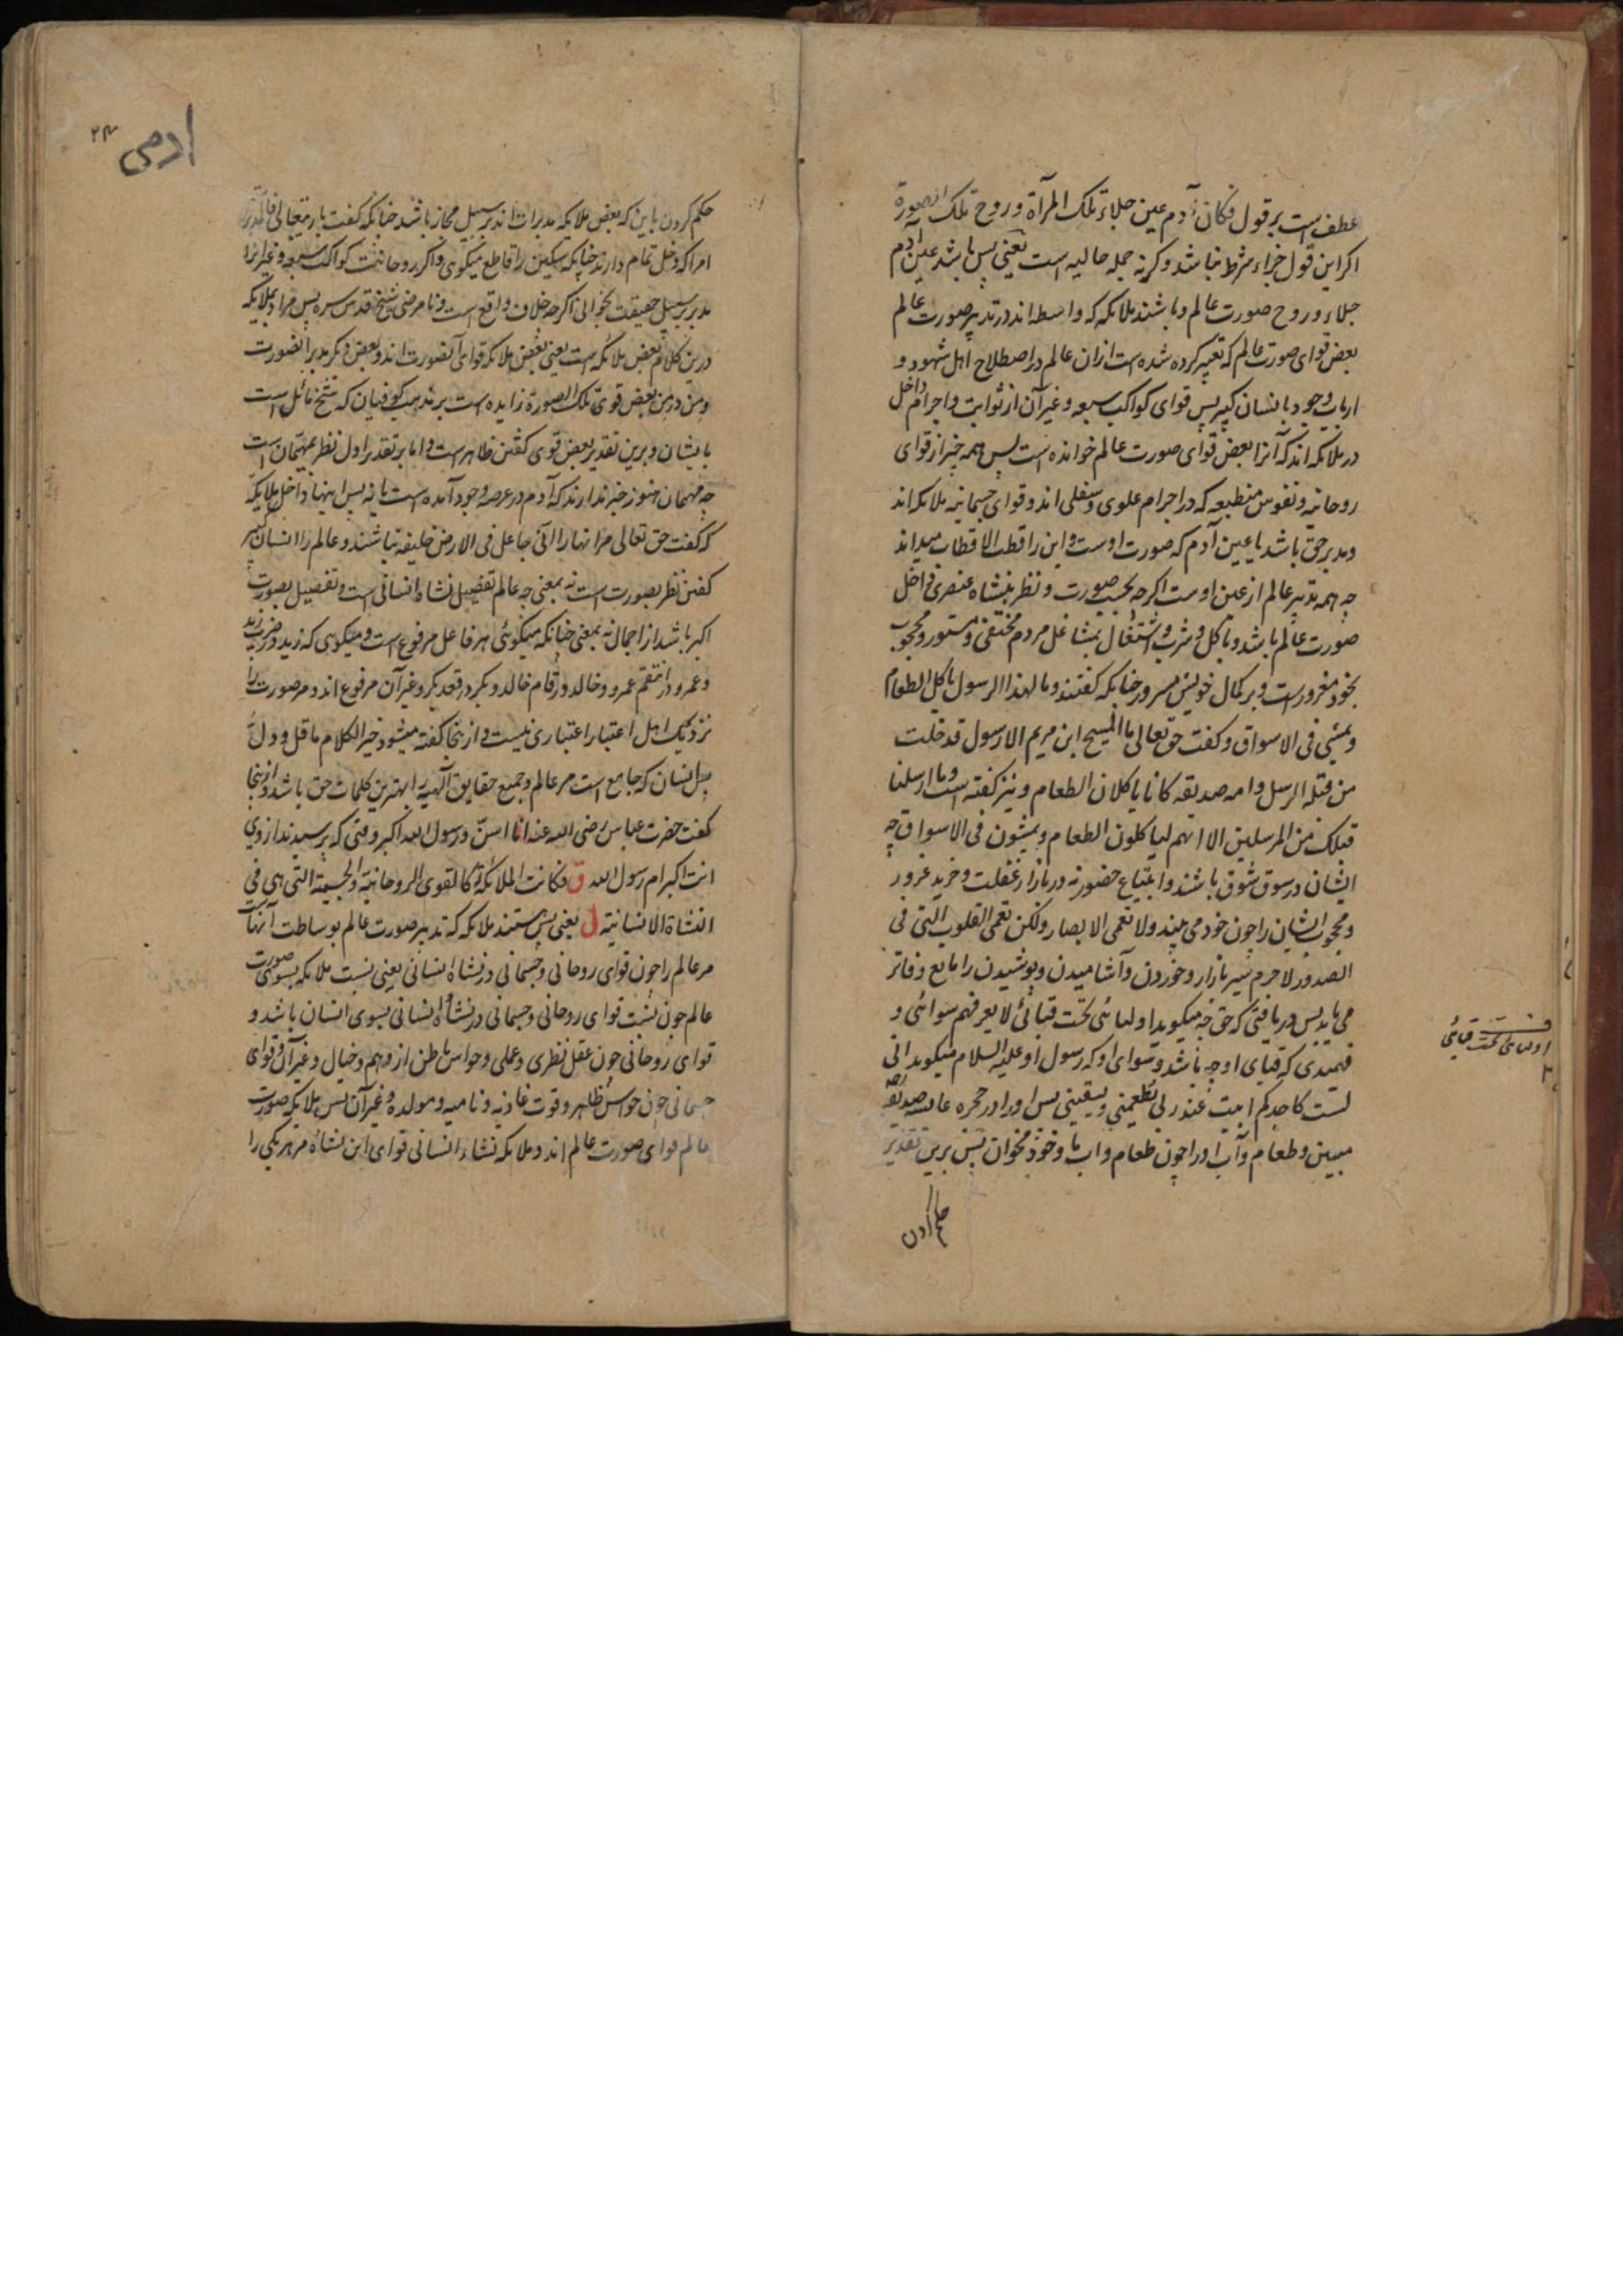 عطف است بر قول فکان آدم عین جلاء تلک المرآة و روح تلک الصورة
اکر این قول جزاء شرط نباشد و کرنه جمله حالیه است یعنی پس باشد عین آدم
جلاء و روح صورت عالم و باشند ملائکه که واسطه اند در تدبیر صورت عالم
بعض قوای صورت عالم که تعبیر کرده شده است ازان عالم در اصطلاح اهل شهود و
ارباب وجود بانسان کبیر پس قوای کواکب سبعه و غیر آن از ثوابت و اجرام داخل
در ملائکه اند که آنرا بعض قوای صورت عالم خوانده است پس همه چیز از قوای
روحانیه و نفوس منطبعه که در اجرام علوی و سفلی اند و قوای جسمانیه ملائکه اند
و مدبر حق باشد یا عین آدم که صورت اوست و این را قطب الاقطاب میداند
چه همه تدبیر عالم از عین اوست اکرچه بحسب صورت و نظر بنشاه عنصری داخل
صورت عالم باشد و باکل و شرب و اشتغال بمشاغل مردم مختفی و مستور و محجوب
بخود مغرور است و بر کمال خویش مسرور چنانکه کفتند و ما لهذا الرسول یاکل الطعام
و یمشی فی الاسواق و کفت حق تعالی ما المسیح ابن مریم الا رسول قد خلت
من قبله الرسل و امه صدیقه کانا یاکلان الطعام و نیز کفته است و ما ارسلنا
قبلک من المرسلین الا انهم لیاکلون الطعام و یمشون فی الاسواق چه
ایشان در سوق شوق باشند و ابتیاع حضور نه در بازار غفلت و خرید غرور
و محجوب ایشان را چون خود می بیند و لا تعمی الابصار و لکن تعمی القلوب التی فی
الصدور لاجرم سیر بازار و خوردن و آشامیدن و پوشیدن را مانع و فاتر
می یابد پس دریافتی که حق چه میکوید اولیائی تحت قبائی لا یعرفهم سوائی و
فهمیدی که قبای او چه باشد و سوای او که رسول او علیه السلام میکوید انی
لست کاحدکم ابیت عند ربی یطعمنی و یسقینی پس او را در حجره عایشه صدیقه
مبین و طعام و آب او را چون طعام و آب با خود مخوان پس برین تقدیر
حکم کردن
اولیای تحت قبائی
ادمی ۲۴
حکم کردن باین که بعض ملائکه مدبرات اند بر سبیل مجاز باشد چنانکه کفت باریتعالی فالمدبرات
امرا که دخل تمام دارند چنانکه سکین را قاطع میکوی و اکر روحانیت کواکب سبعه و غیر آنرا
مدبر بر سبیل حقیقت بخوانی اکرچه خلاف واقع است و نا مرضی شیخ قدس سره پس مراد بملائکه
درین کلام بعض ملائکه است یعنی بعض ملائکه قوای آنصورت اند و بعض دیکر مدبر آنصورت
و من در من بعض قوی تلک الصورة زایده است بر مذهب کوفیان که شیخ مائل است
بایشان و برین تقدیر بعض قوی کفتن ظاهر است و اما بر تقدیر اول نظر بمهیمان است
چه مهیمان هنوز خبر ندارند که آدم در عرصه وجود آمده است یا نه پس اینها داخل ملائکه
که کفت حق تعالی مر انها را انی جاعل فی الارض خلیفه نباشند و عالم را انسان کبیر
کفتن نظر بصورت است نه بمعنی چه عالم تفصیل نشاه انسانی است و تفصیل بصورت
اکبر باشد از اجمال نه بمعنی چنانکه میکوئی هر فاعل مرفوع است و میکوی که زید در ضرب زید
و عمرو در انتقم عمرو و خالد در قام خالد و بکر در قعد بکر و غیر آن مرفوع اند و مر صورت را
نزدیک اهل اعتبار اعتباری نیست و از ینجا کفته میشود خیر الکلام ما قل و دل
پس انسان که جامع است مر عالم و جمیع حقایق آلهیه را بهترین کلمات حق باشد و از ینجا
کفت حضرت عباس رضی الله عنه انا اسن و رسول الله اکبر وقتی که پرسیدند از وی
انت اکبر ام رسول الله ق فکانت الملائکة کالقوی الروحانیة و الحسیة التی هی فی
النشاة الانسانیة ل یعنی پس هستند ملائکه که تدبیر صورت عالم بوساطت آنهاست
مر عالم را چون قوای روحانی و جسمانی در نشاه انسانی یعنی نسبت ملائکه بسوی صورت
عالم چون نسبت قوای روحانی و جسمانی در نشاه انسانی بسوی انسان باشد و
قوای روحانی چون عقل نظری و عملی و حواس باطن از وهم و خیال و غیر آن و قوای
جسمانی چون حواس ظاهر و قوت غاذیه و نامیه و مولده و غیر آن پس ملائکه صورت
عالم قوای صورت عالم اند و ملائکه نشاء انسانی قوای این نشاه مر هر یکی را